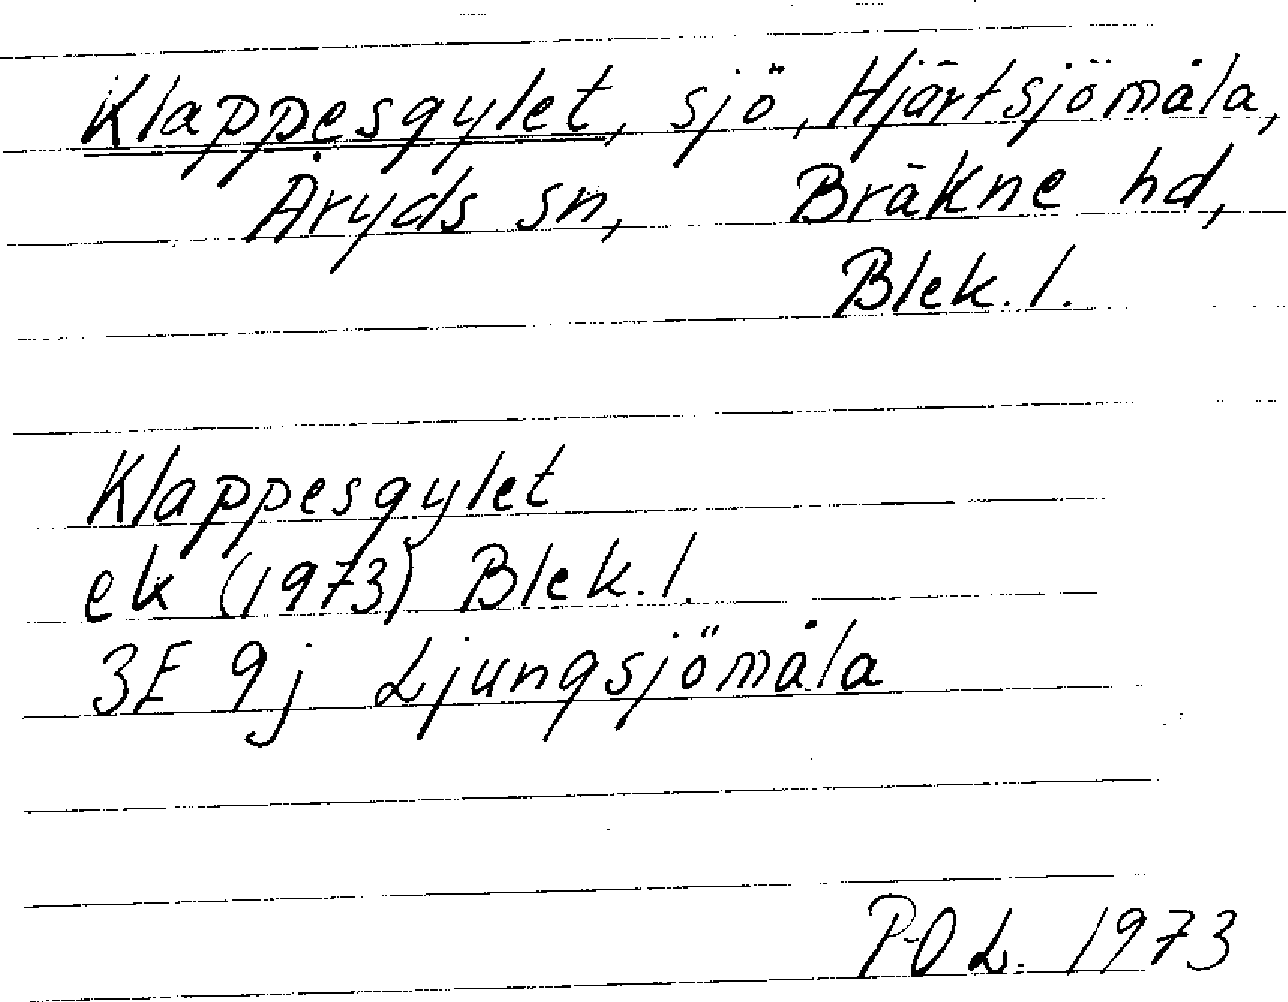 Klappesgylet, sjö, Hjärtsjömåla,
Åryds sn, Bräkne hd,
Blek. l.
Klappesgylet
ek (1973) Blek. l.
3E 9j Ljungsjömåla
P-O L. 1973